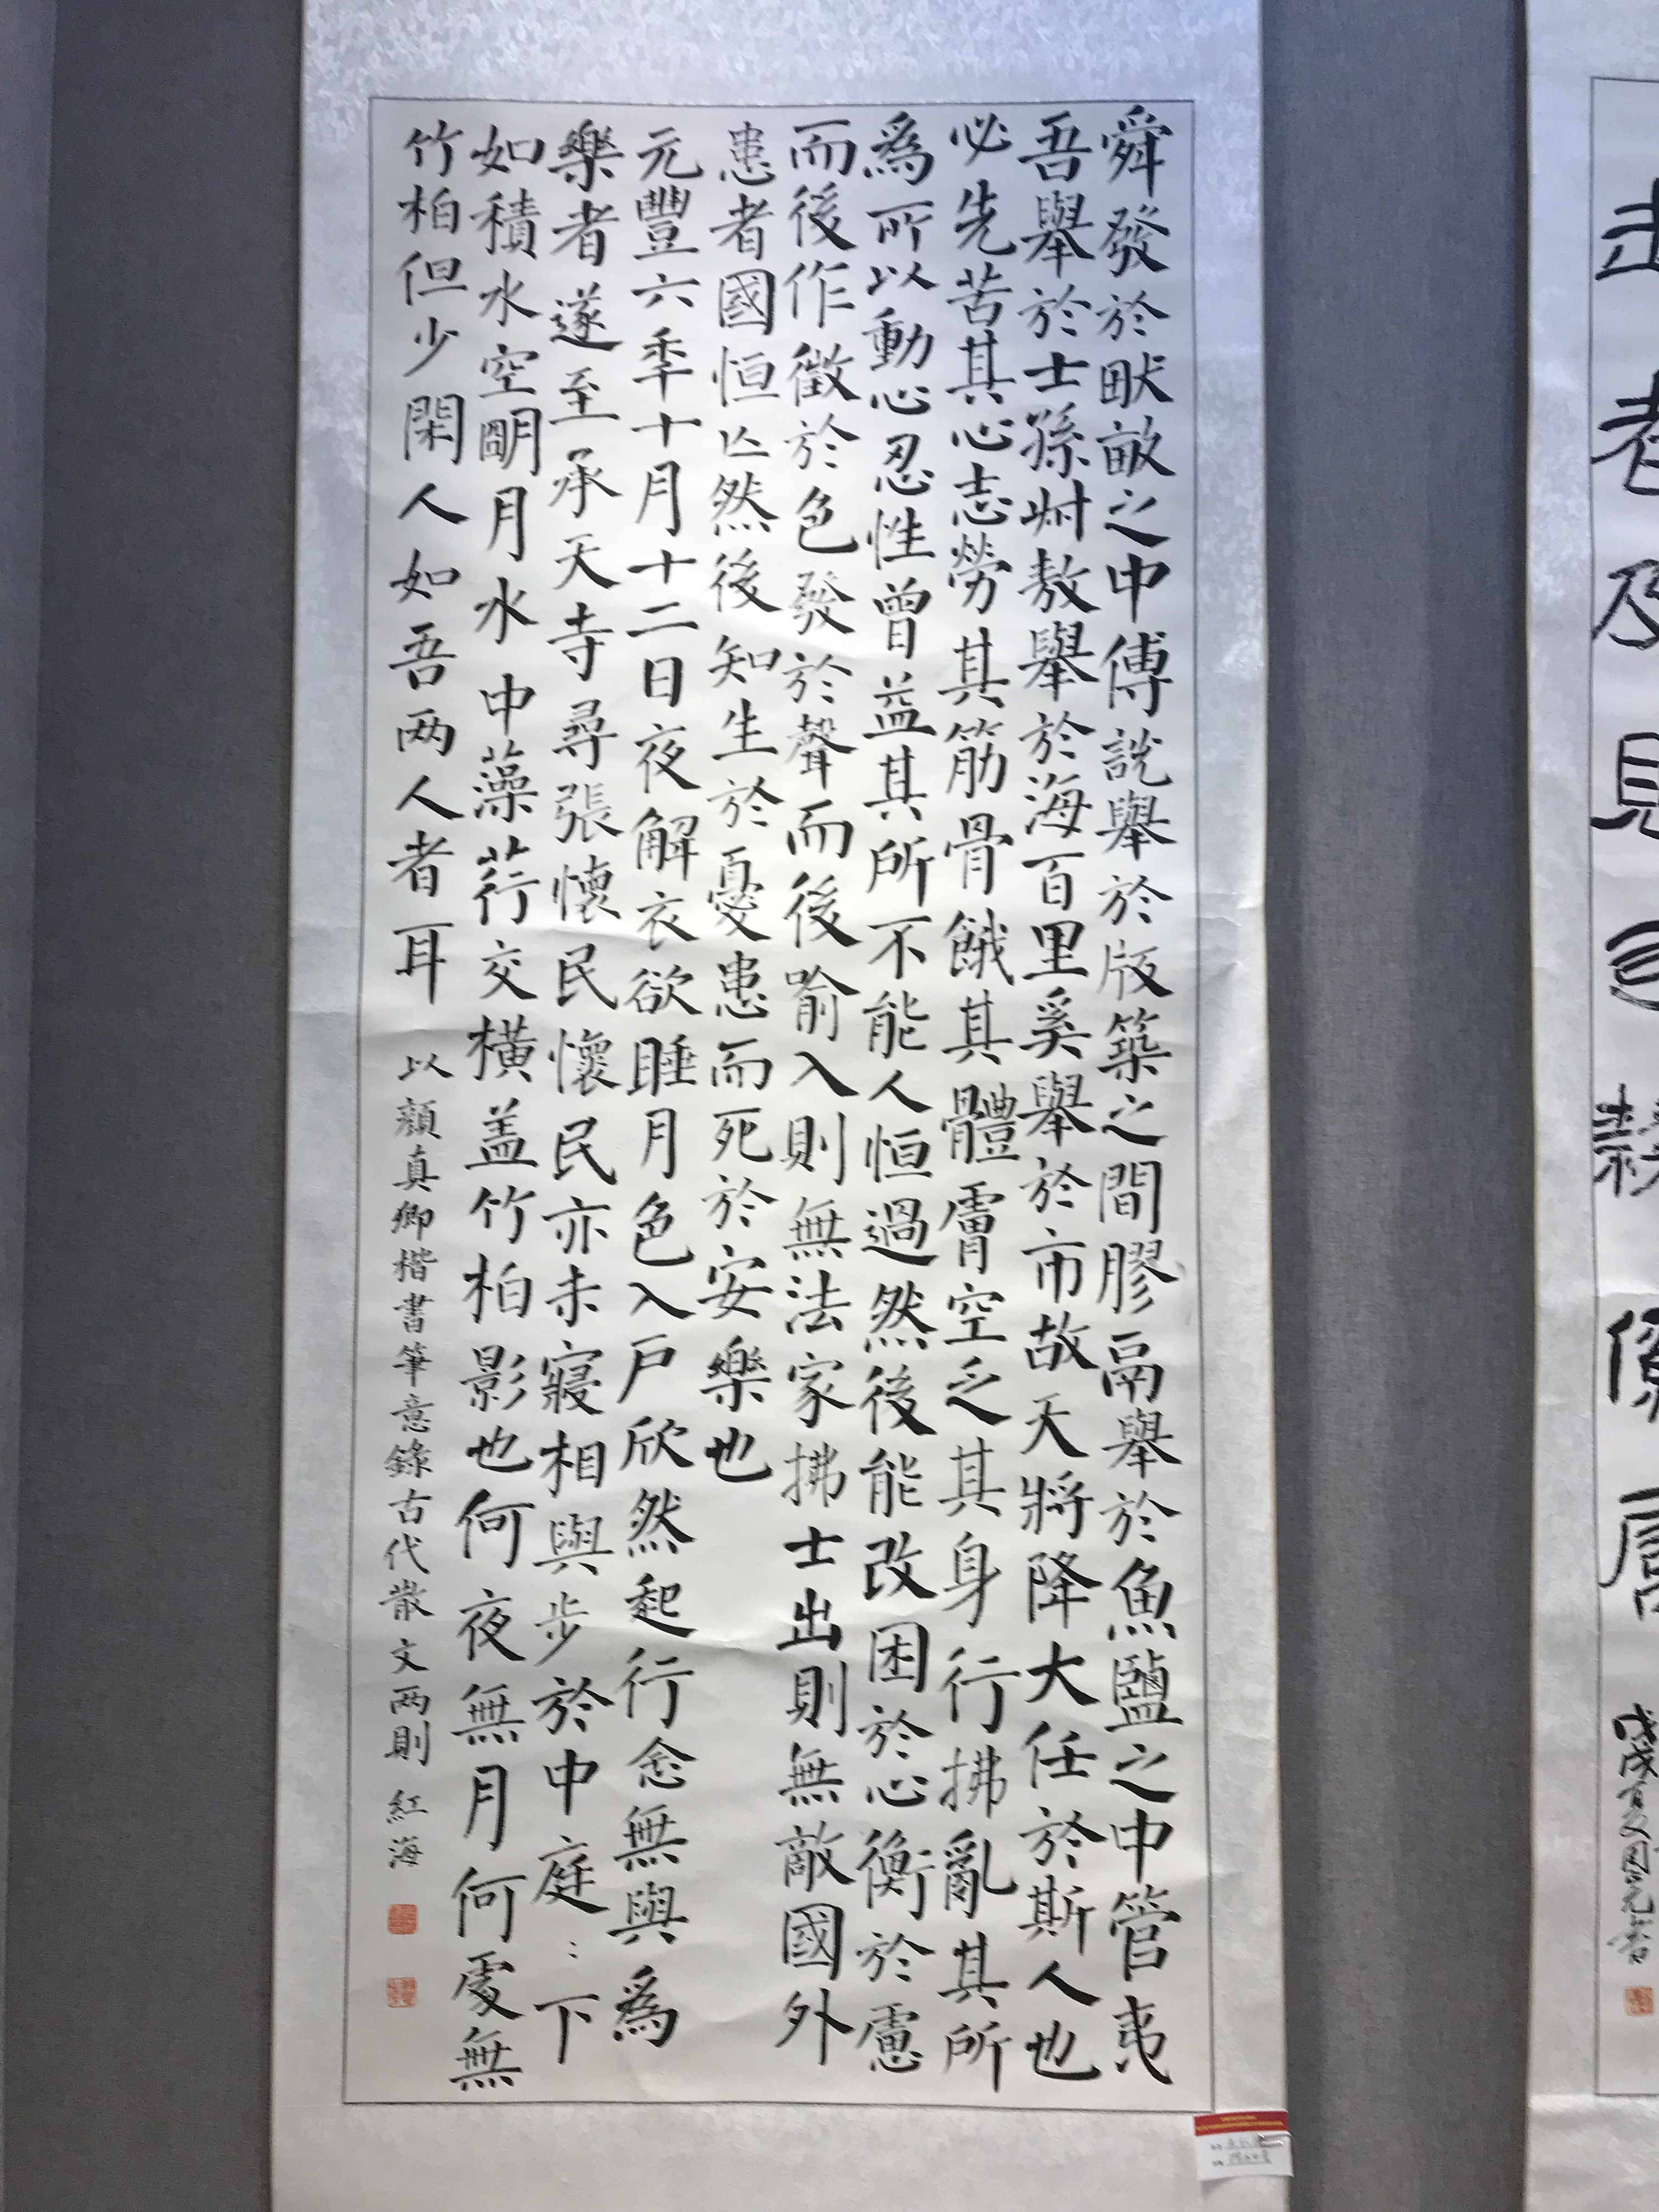 舜發於畎畝之中傅說舉於版築之間膠鬲舉於魚鹽之中管夷
吾舉於士孫叔敖舉於海百里奚舉於市故天將降大任於斯人也
必先苦其心志勞其筋骨餓其體膚空乏其身行拂亂其所
為所以動心忍性曾益其所不能人恒過然後能改困於心衡於慮
而後作徵於色發於聲而後喻入則無法家拂士出則無敵國外
患者國恒亡然後知生於憂患而死於安樂也
元豐六季十月十二日夜解衣欲睡月色入戶欣然起行念無與為
樂者遂至承天寺尋張懷民懷民亦未寢相與步於中庭：下
如積水空朙月水中藻荇交橫盖竹柏影也何夜無月何處無
竹柏但少閑人如吾两人者耳
以顏真卿楷書筆意錄古代散文两則 紅海
者及見
戊戌夏